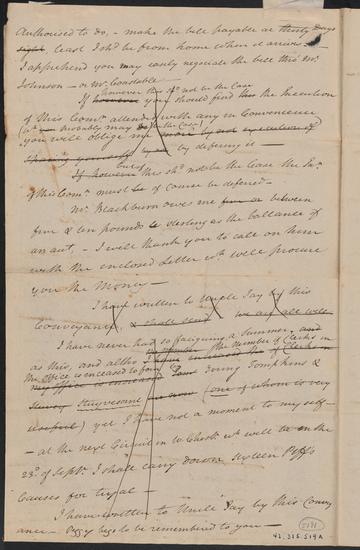 Authorised to do, - make the bill payable at thirty Days
sight, least I shd. be from home when it arrives -
I apprehend you may easily negociate the bill thro' Mr.
Johnson - or Mr. Constable -
however this shd. not be the Case
If however you should find the Execution
of this Comn. attended with any in Convenience
(as you probably may be the Case)
you will oblige me by defering it -
but if
If however this shd. not be the Case the
of this Comn. must be of course be defered -
Mr. Blackburn owes me five or between
five & ten pounds Sterling as the ballance of
an act, - I will thank you to call on him
with the enclosed Letter wh. will procure
you the Money -
I have written to Uncle Jay by this
Conveyance, & shall send we are all well
I have never had so fatiguing a Summer, and
as this, and altho the Number of Clerks in
my office is encreased to four Tommy Tompkins &
Stuyvesant (one of whom is very
usefull) yet I have not a moment to my self
- at the next Circuit in W. Chestr. wh. will be on the
23d. of Septr. I shall carry down sixteen Pff's
Causes for tryal -
I have written to Uncle Jay by this Convey
ance - Peggy begs to be remembered to you -
42.315.519A